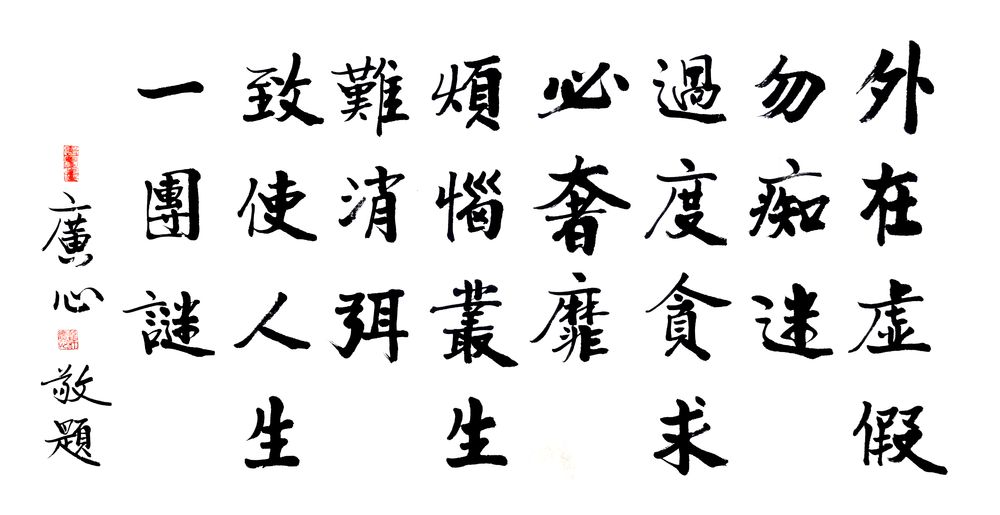 外在虛假
勿痴迷
過度貪求
必奢靡
煩惱叢生
難消弭
致使人生
一團謎
廣心敬題